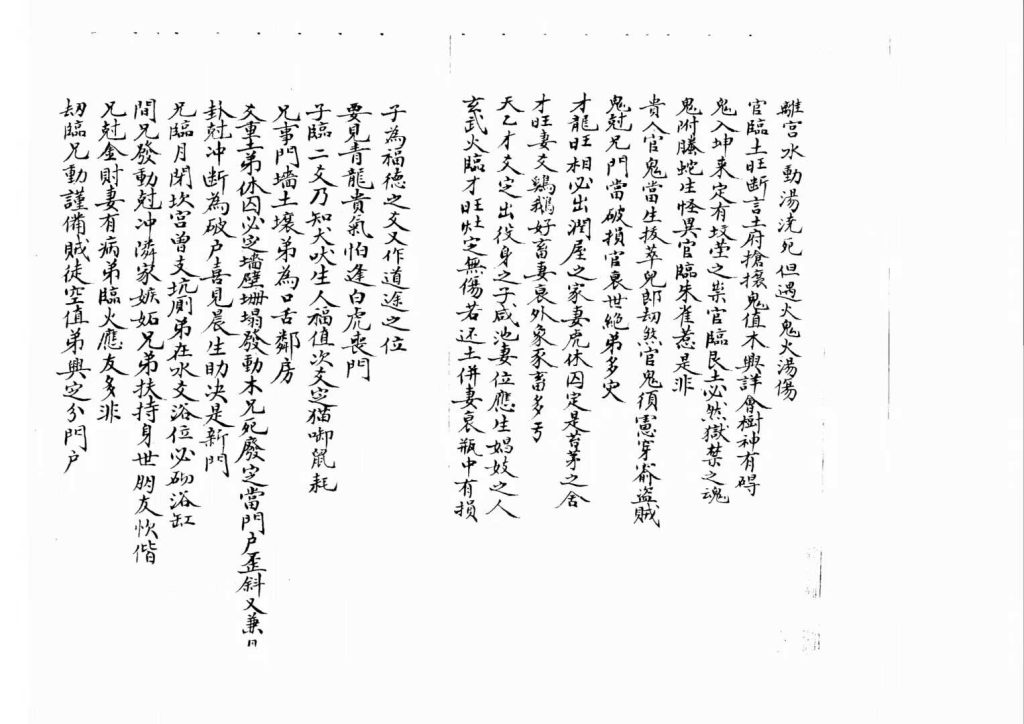 離宮水動湯澆死但遇火鬼火湯傷
官臨土旺断言土府搶攘鬼值木興詳會樹神有碍
鬼入坤来定有坟茔之祟官臨艮土必然獄禁之魂
鬼附螣蛇生怪異官臨朱雀惹是非
貴人官鬼當生抜萃兒郎劫煞官鬼須憲穿窬盗賊
鬼尅兄門當破損官衰世絶弟多灾
才龍旺相必出潤屋之家妻虎休囚定是苫茅之舍
才旺妻爻鷄鵝好畜妻衰外象豕畜多亏
天乙才爻定出役身之子咸池妻位應生娼妓之人
玄武火臨才旺灶定無傷若还土併妻衰瓶中有損
子為福德之爻又作道途之位
要見青龍貴氣怕逢白虎喪門
子臨二爻乃知犬吠生人福值次爻定猫啣鼠耗
兄事門墙土壤弟為口舌鄰房
爻重土弟休囚必定墙壁坍塌發動木兄死廢定當門户歪斜又兼日
卦尅冲断為破户喜見晨生助决是新門
兄臨月閉坎宮曾支坑厠弟在水爻浴位必砌浴缸
間兄發動尅冲隣家嫉妬兄弟扶持身世朋友忺偕
兄尅金財妻有病弟臨火應友多非
劫臨兄動謹備賊徒空值弟興定分門户